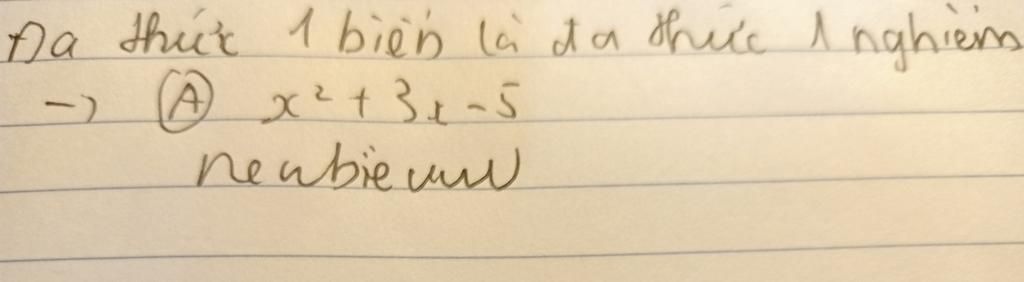 Đa thức 1 biến là đa thức 1 nghiệm
-> (A) x² + 3x - 5
newbie